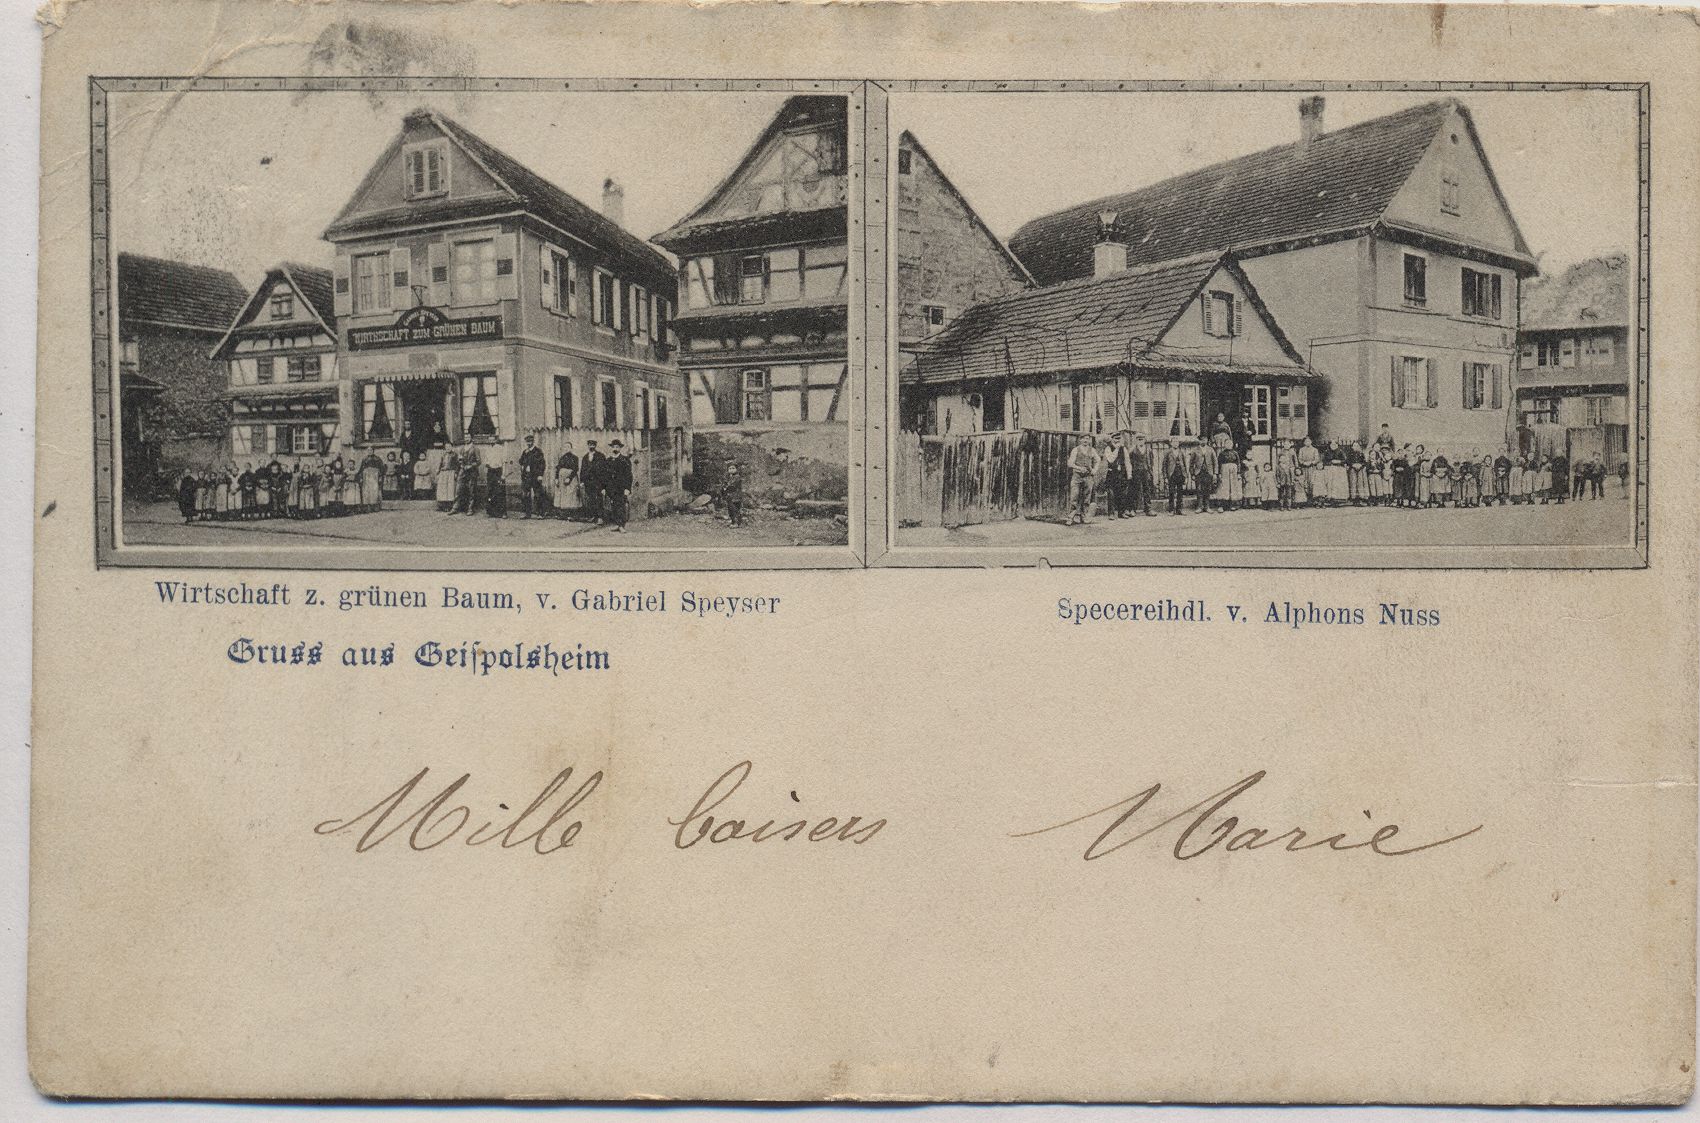 WIRTSCHAFT ZUM GRÜNEN BAUM
Wirtschaft z. grünen Baum, v. Gabriel Speyser
Specereihdl. v. Alphons Nuss
Gruss aus Geiſpolsheim
Mille baisers Marie